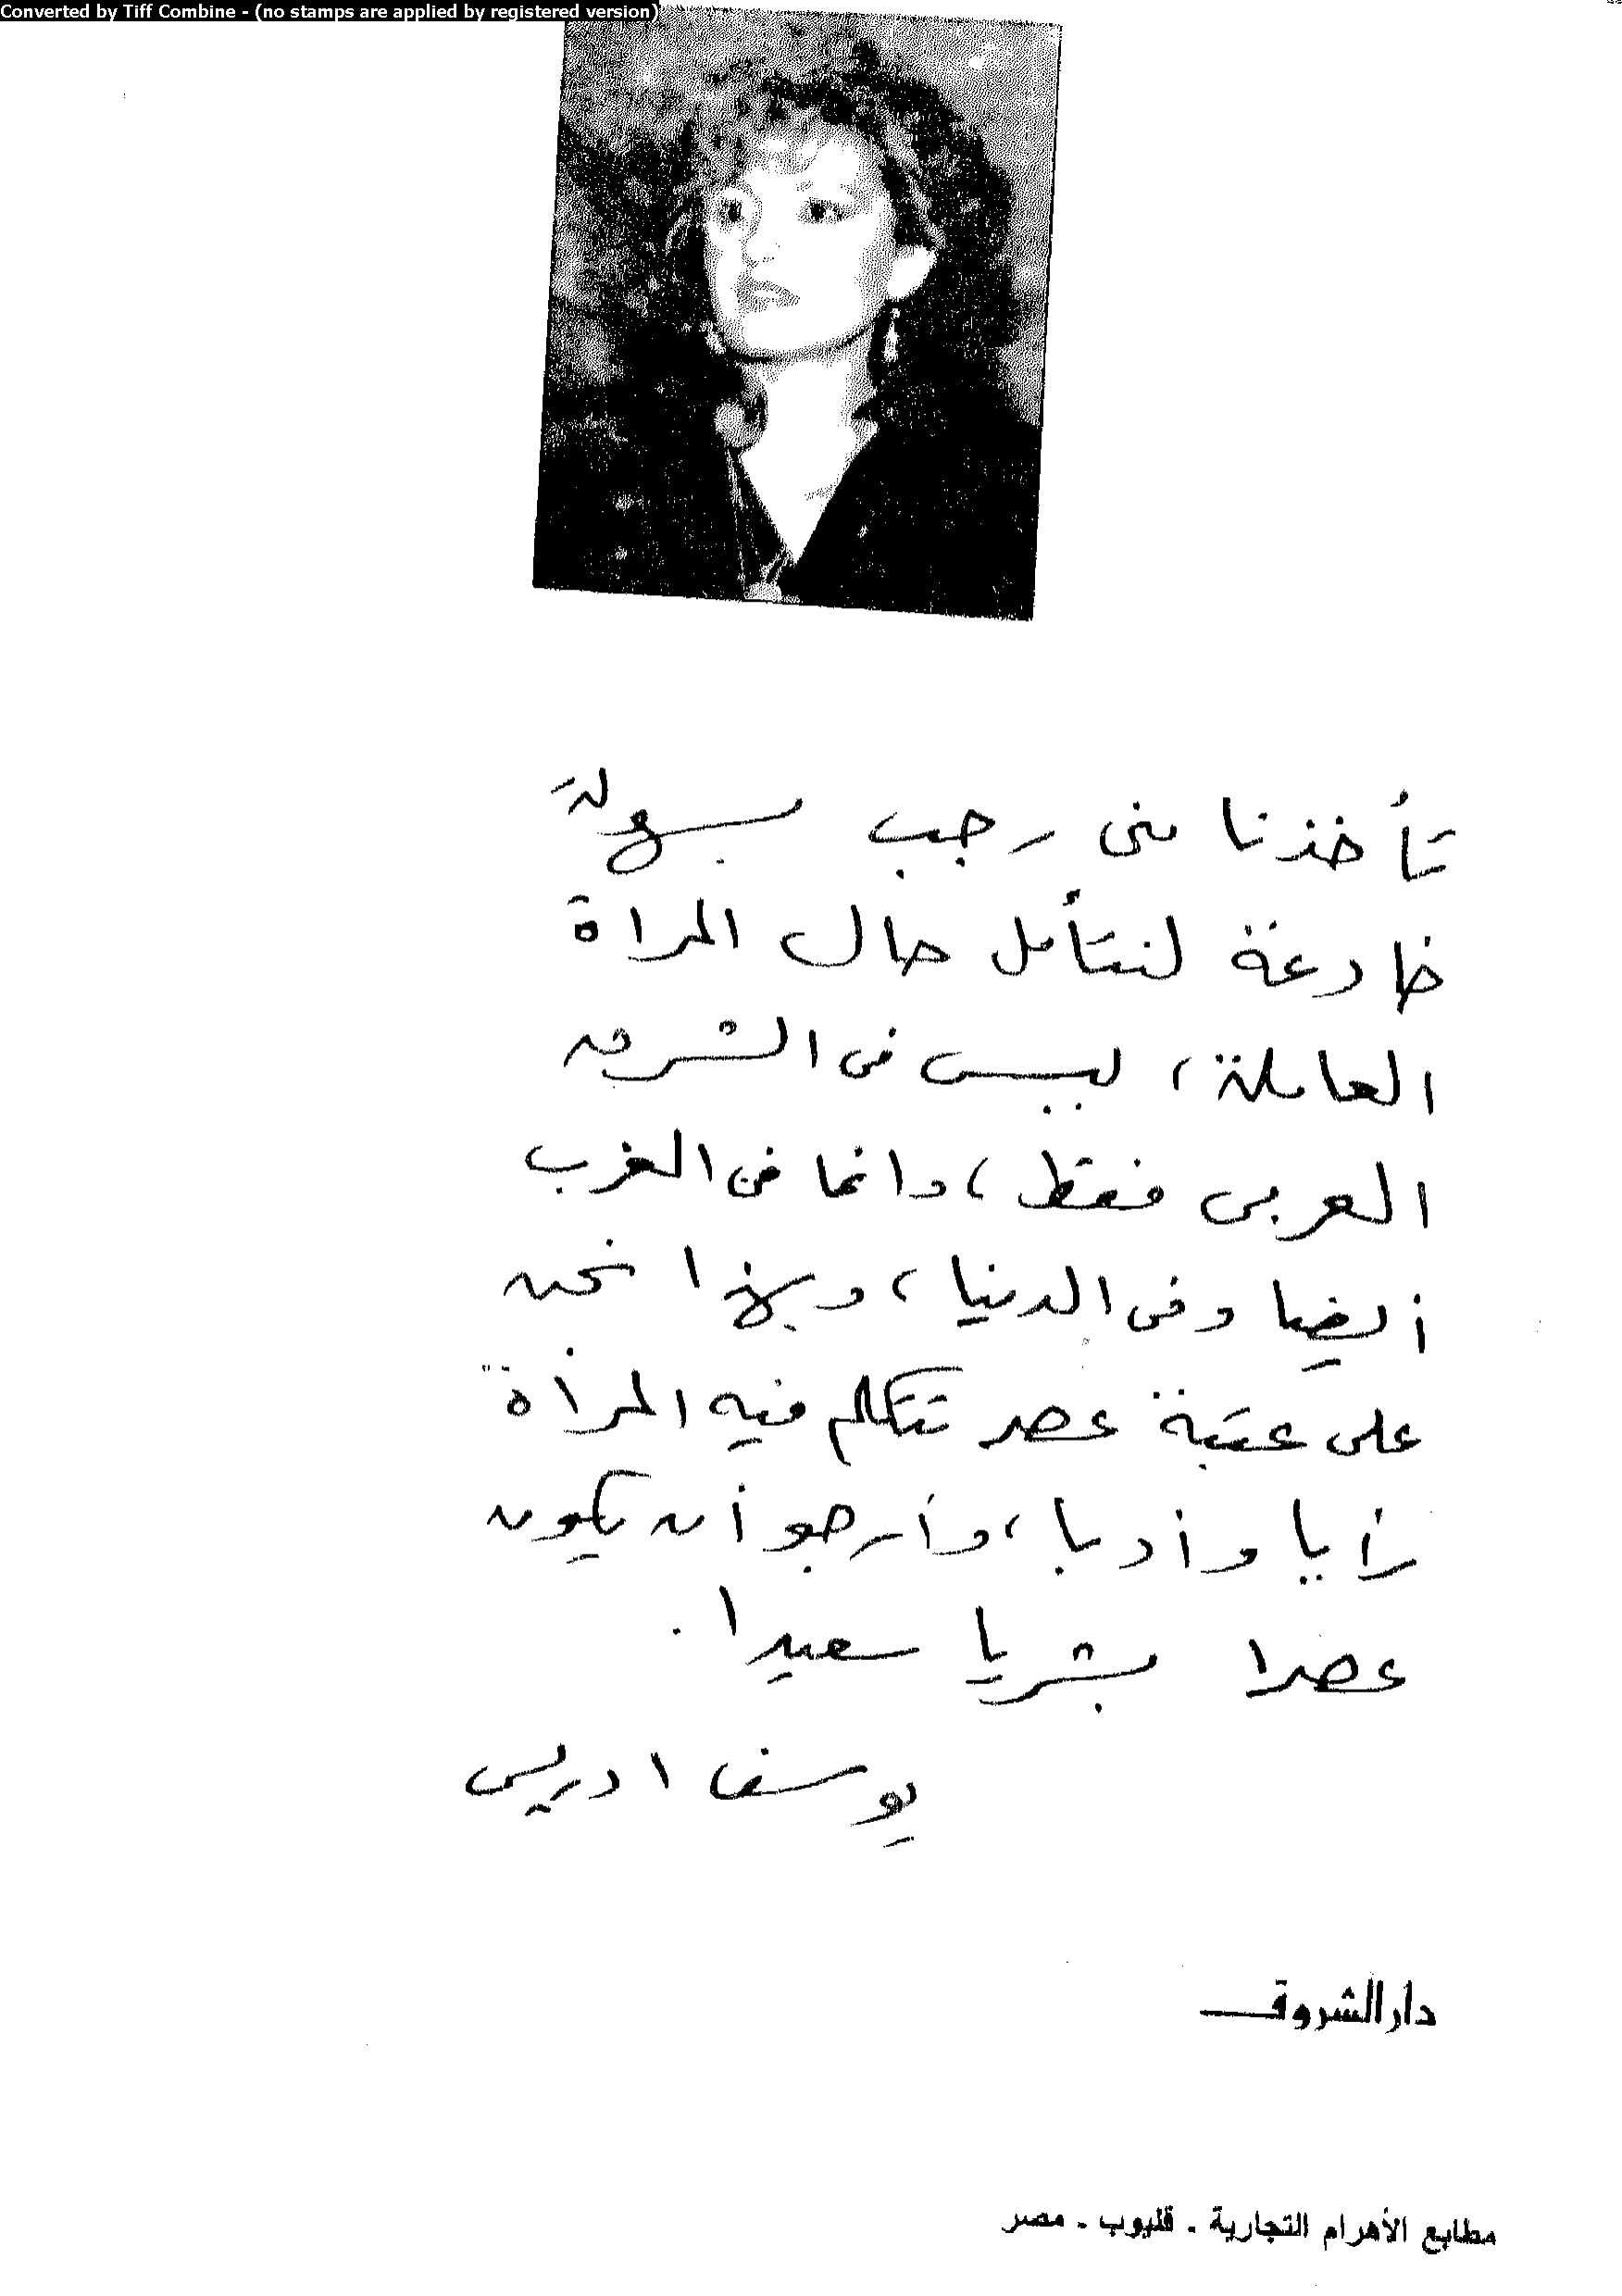 Converted by Tiff Combine - (no stamps are applied by registered version)
تأخذنا منى رجب بسهولة
خادعة لنتأمل حال المراة
العاملة، ليس فى الشرق
العربى فقط، وانما فى الغرب
أيضا وفى الدنيا، وبهذا نحن
على عتبة عصر تتكلم فيه المرأة
رأيا وأدبا، وأرجو أن يكون
عصرا بشريا سعيدا.
يوسف ادريس
دار الشروق
مطابع الأهرام التجارية . قليوب . مصر